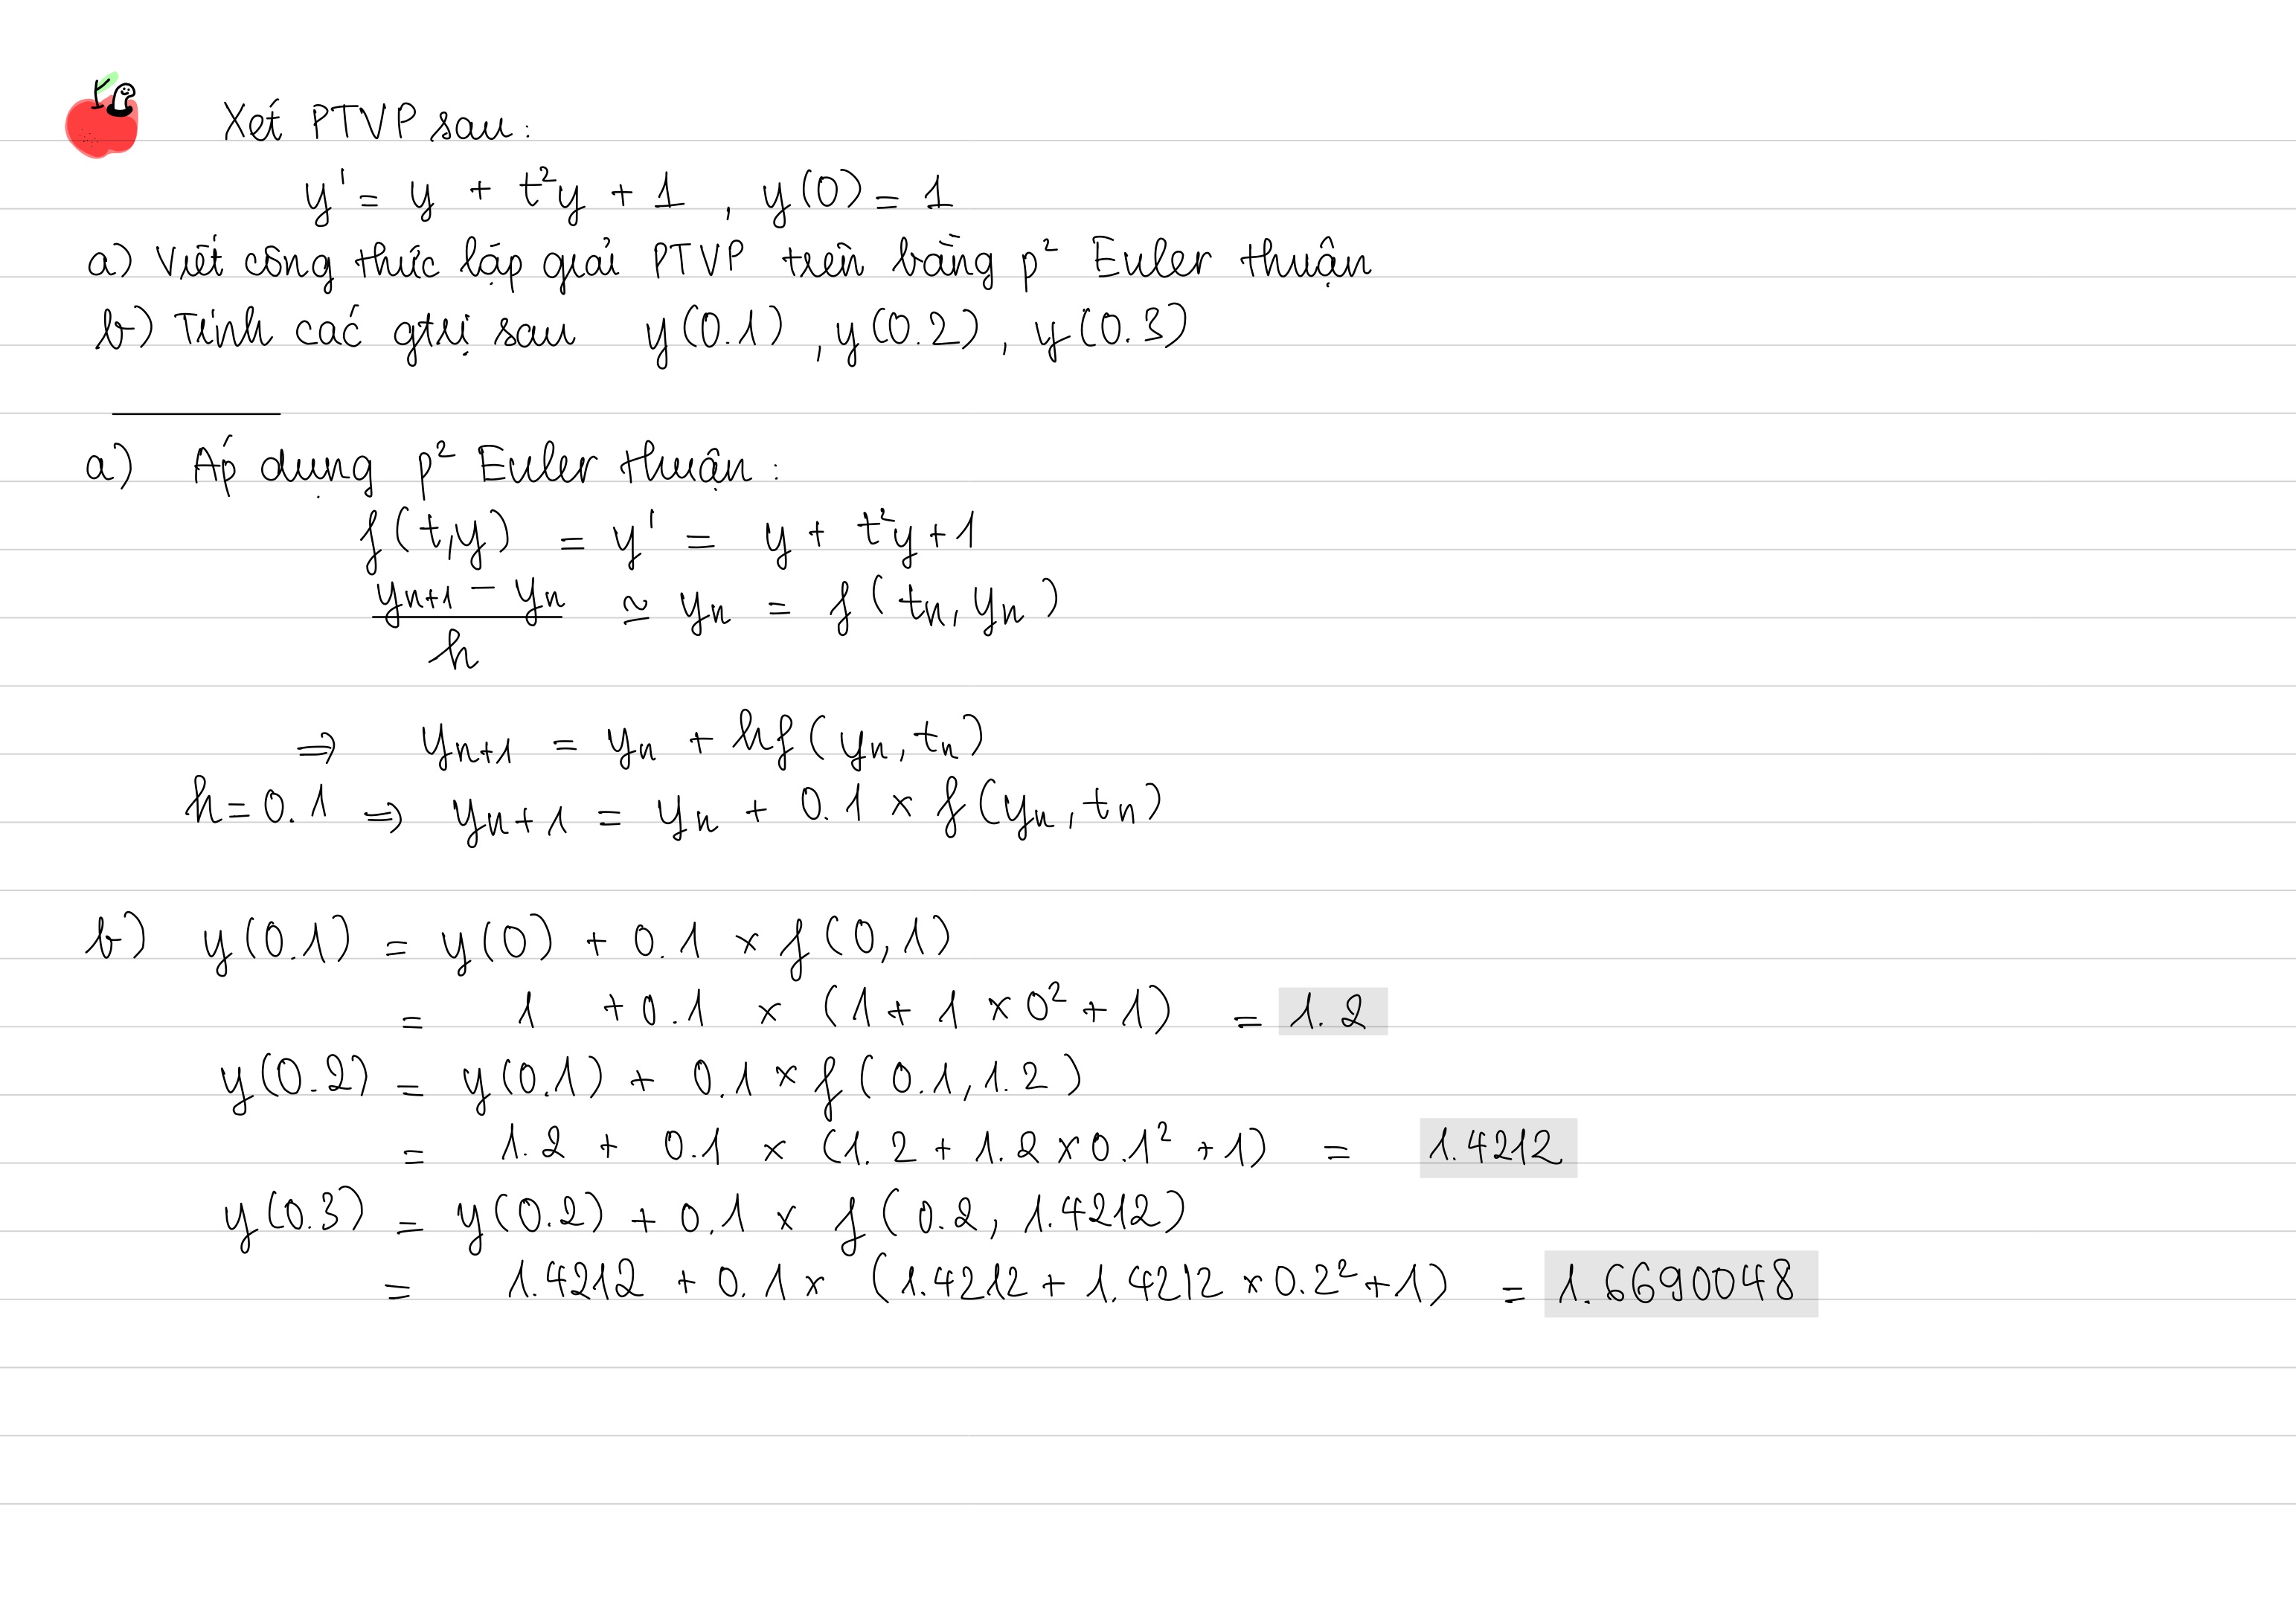 Xét PTVP sau:
y' = y + t²y + 1 , y(0) = 1
a) Viết công thức lặp giải PTVP trên bằng p² Euler thuận
b) Tính các gtrị sau y(0.1) , y(0.2) , y(0.3)
a) Áp dụng p² Euler thuận :
f(t,y) = y' = y + t²y + 1
(yₙ₊₁ − yₙ)/h ≃ yₙ = f(tₙ, yₙ)
⇒ yₙ₊₁ = yₙ + hf(yₙ, tₙ)
h = 0.1 ⇒ yₙ₊₁ = yₙ + 0.1 × f(yₙ, tₙ)
b) y(0.1) = y(0) + 0.1 × f(0, 1)
= 1 + 0.1 × (1 + 1 × 0² + 1) = 1.2
y(0.2) = y(0.1) + 0.1 × f(0.1, 1.2)
= 1.2 + 0.1 × (1.2 + 1.2 × 0.1² + 1) = 1.4212
y(0.3) = y(0.2) + 0.1 × f(0.2, 1.4212)
= 1.4212 + 0.1 × (1.4212 + 1.4212 × 0.2² + 1) = 1.6690048